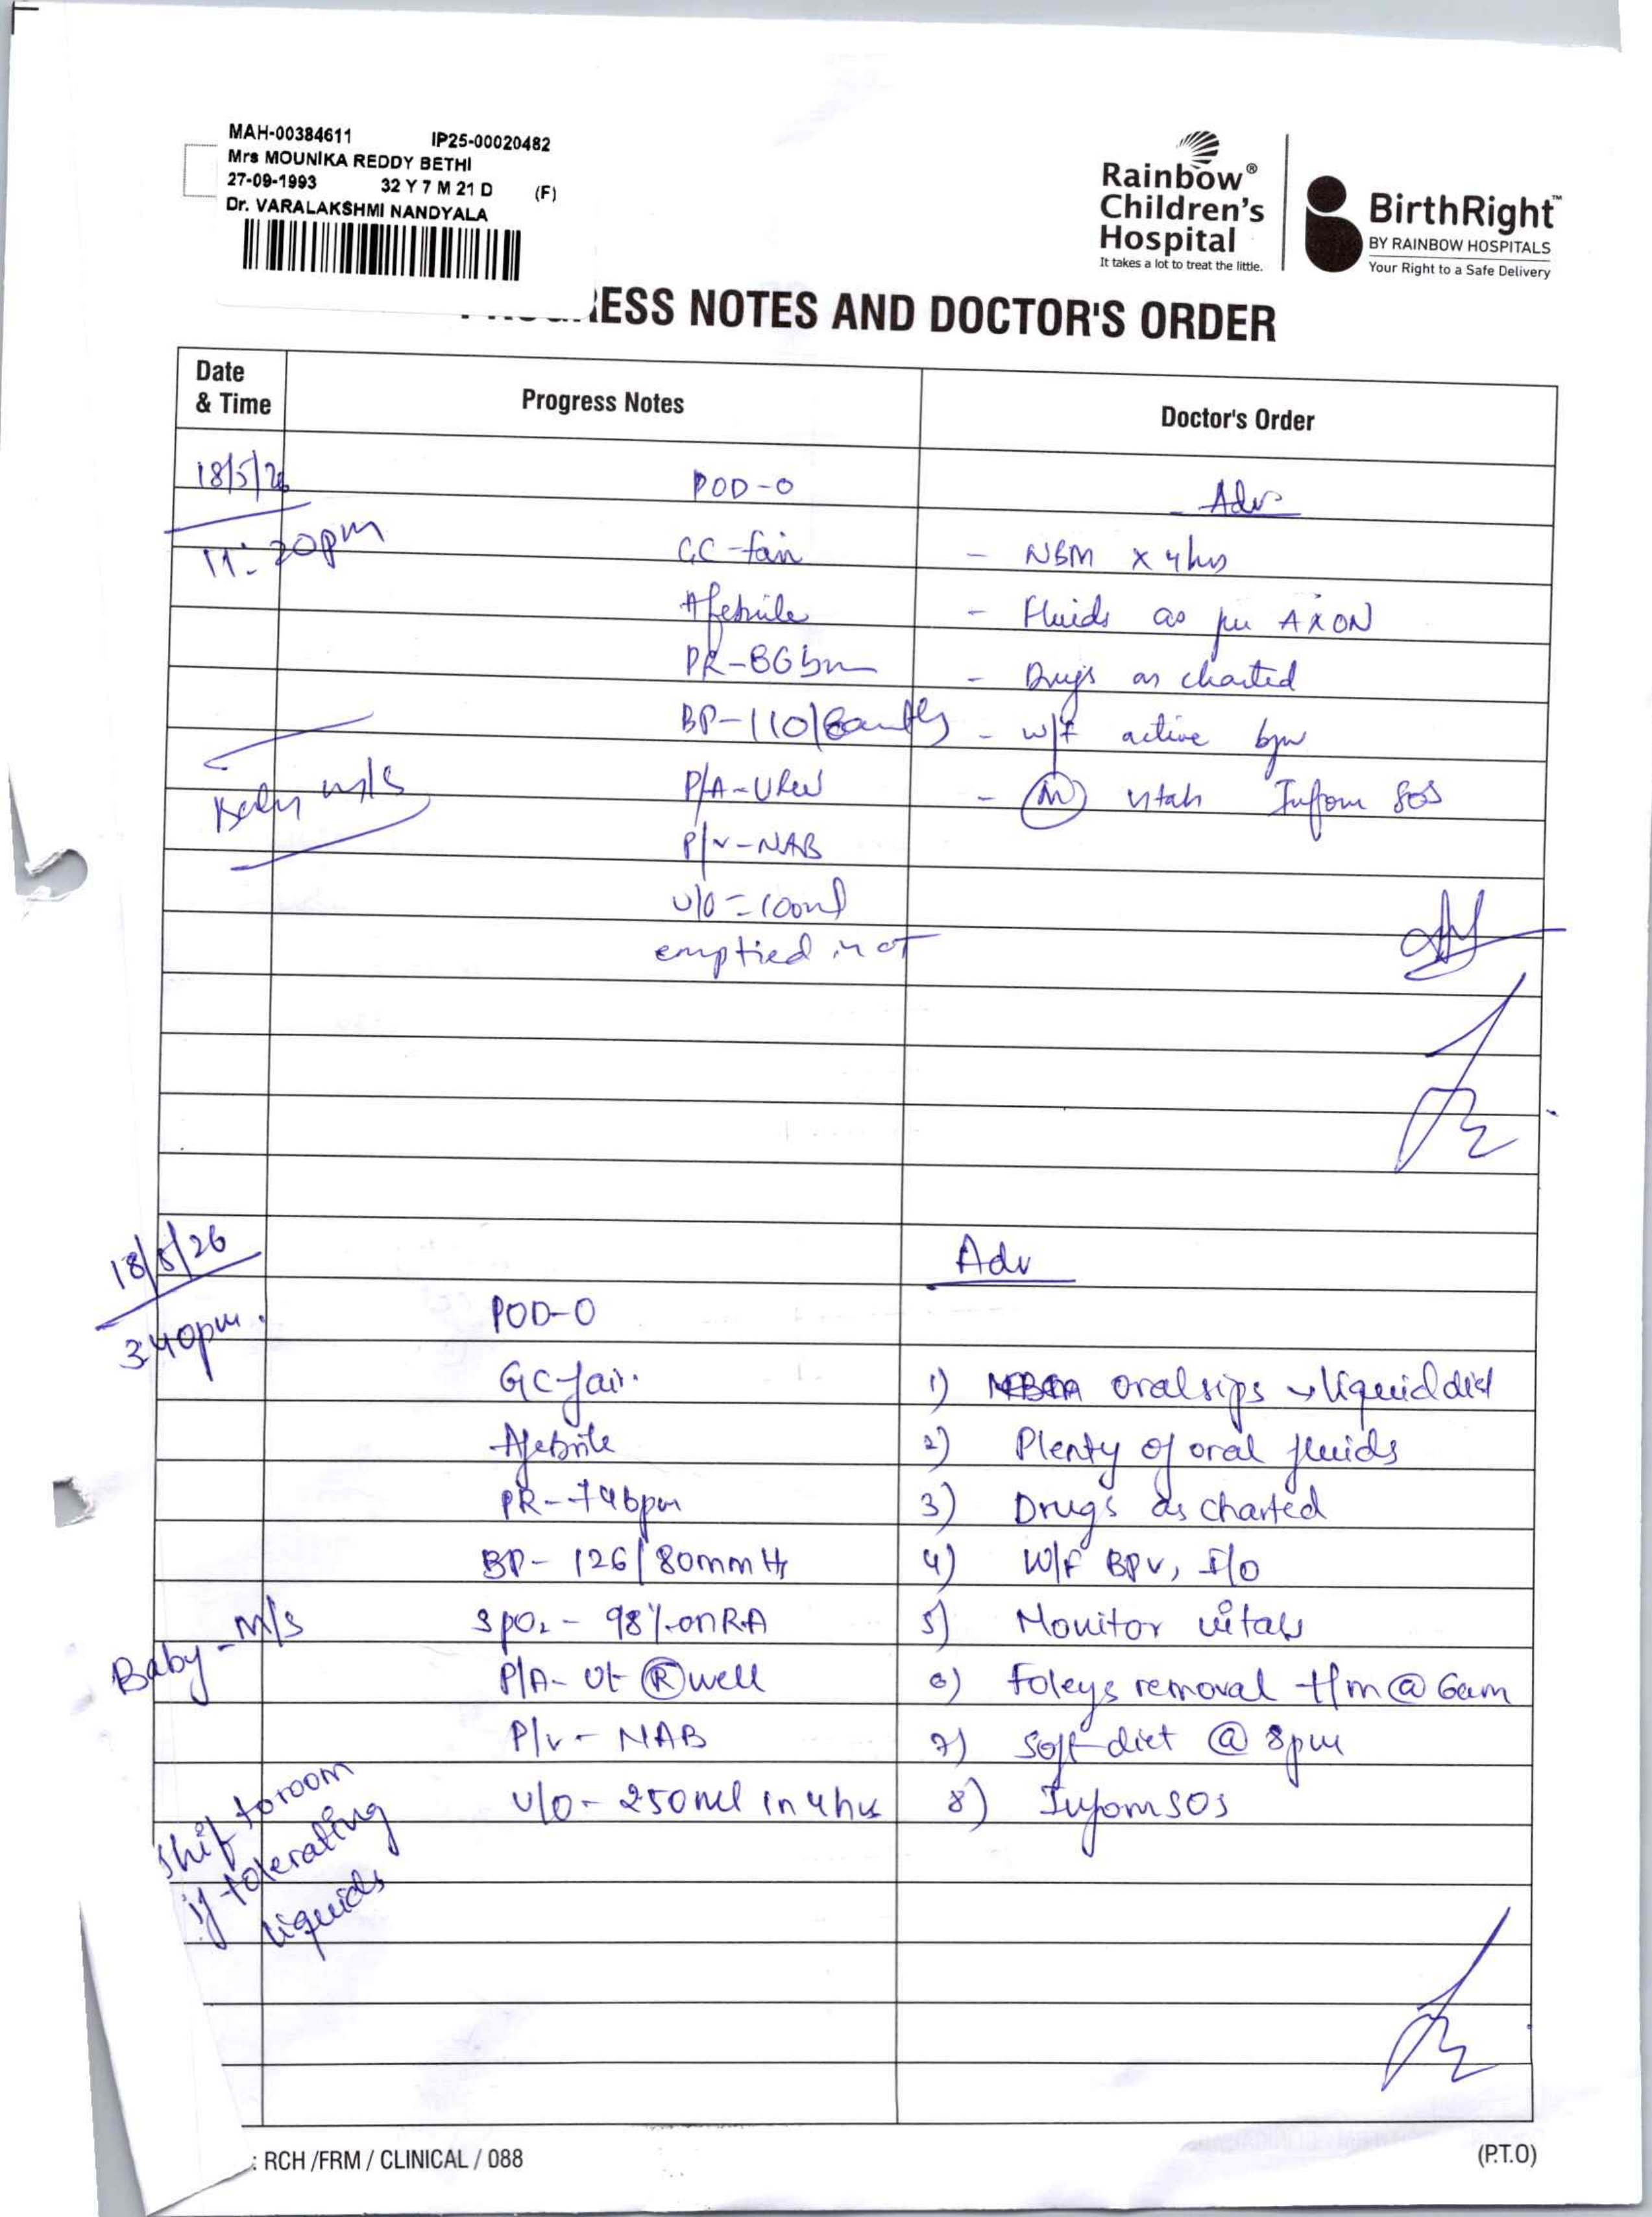 MAH-00384611 IP25-00020482
Mrs MOUNIKA REDDY BETHI
27-09-1993 32 Y 7 M 21 D (F)
Dr. VARALAKSHMI NANDYALA
Rainbow®
Children's
Hospital
It takes a lot to treat the little.
BirthRight™
BY RAINBOW HOSPITALS
Your Right to a Safe Delivery
ESS NOTES AND DOCTOR'S ORDER
Date
& Time
Progress Notes
Doctor's Order
18/5/26
POD-0
Adv
GC-fair
- NBM x 4hrs
Afebrile
- Fluids as per AXON
PR-86bm
- Drugs as charted
BP-110/
- w/f active bpv
Baby m/s
P/A-
- (M) vitals Inform SOS
P/v-NAB
u/o = 100ml
emptied in OT
18/5/26
Adv
3:40pm.
POD-0
GC fair.
1) oral sips → liquid diet
Afebrile
2) Plenty of oral fluids
PR-74bpm
3) Drugs as charted
BP- 126/80mmHg
4) W/F BPV, I/O
Baby - M/s
SpO₂ - 98% on RA
5) Monitor vitals
P/A- Ut Ⓡ well
6) Foleys removal t/m @ 6am
P/v - NAB
7) Soft diet @ 8pm
u/o - 250ml in 4hrs
8) Inform SOS
Shift to room
if tolerating
liquids
: RCH /FRM / CLINICAL / 088
(P.T.O)